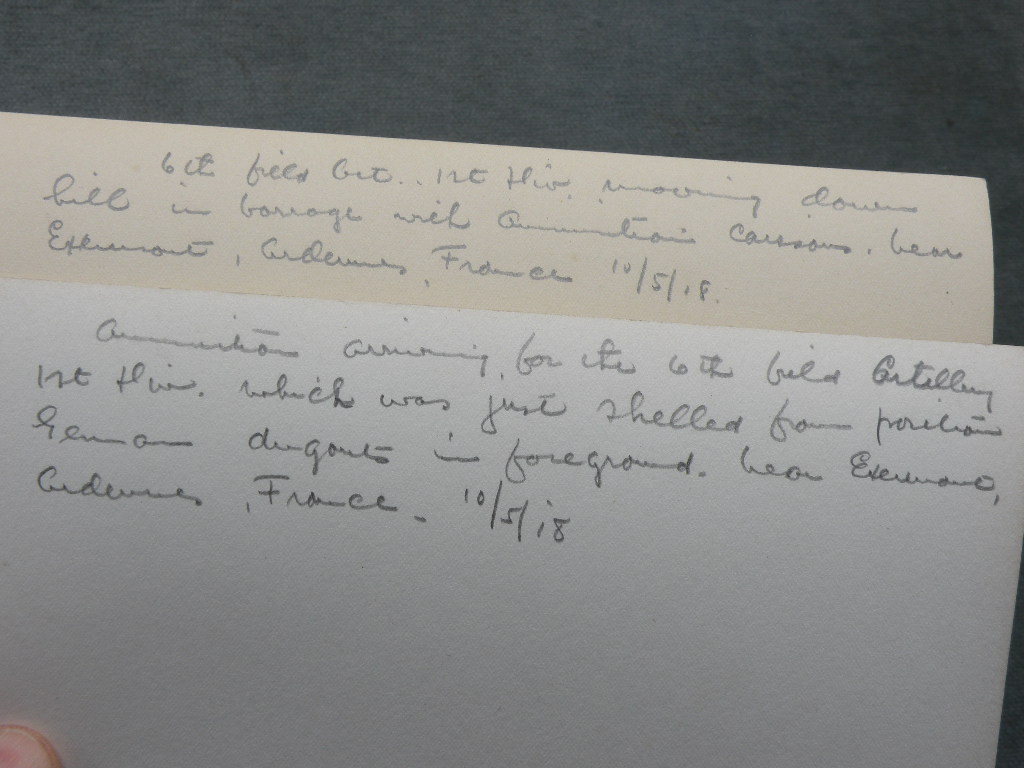 6th field Art. 1st Div. moving down
hill in barrage with ammunition Caissons. near
Exermont, Ardennes, France 10/5/18.
Ammunition arriving for the 6th field Artillery
1st Div. which was just shelled from position
German dugouts in foreground. near Exermont,
Ardennes, France. 10/5/18